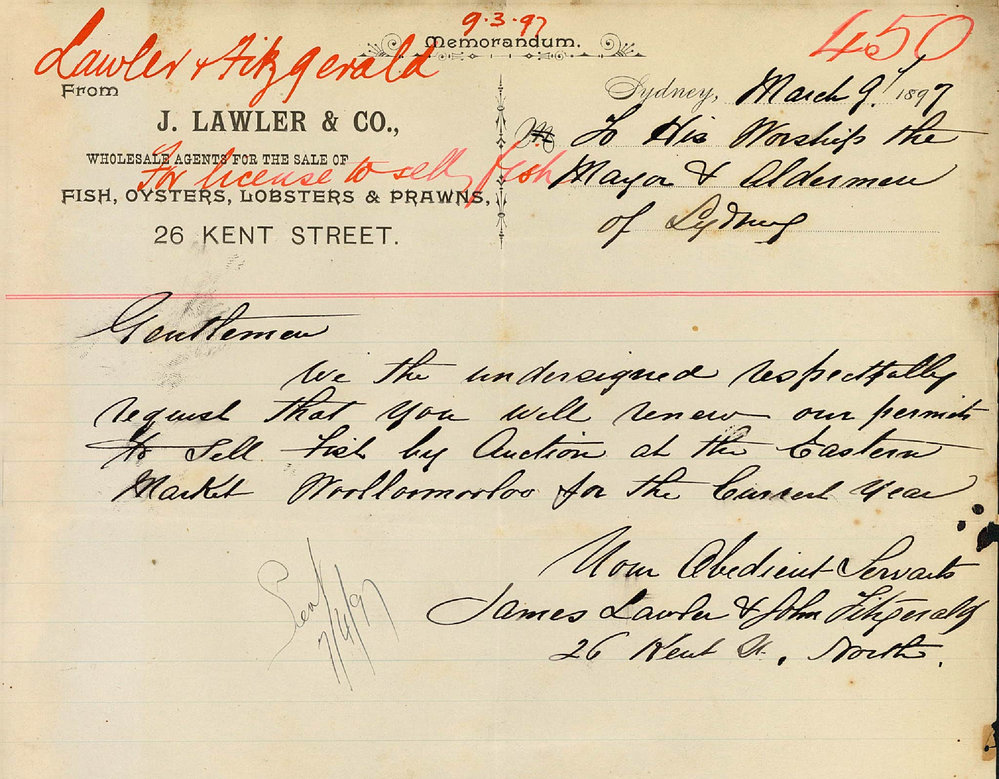 9.3.97
Memorandum.
450
Lawler & Fitzgerald
From
J. LAWLER & CO.,
WHOLESALE AGENTS FOR THE SALE OF
For license to sell fish
FISH, OYSTERS, LOBSTERS & PRAWNS,
26 KENT STREET.
Sydney, March 9 1897
M To His Worship the
Mayor & Aldermen
of Sydney
Gentlemen
We the undersigned respectfully
request that you will renew our permits
to sell Fish by Auction at the Eastern
Market Woolloomooloo for the Current Year
Your Obedient Servants
James Lawler & John Fitzgerald
26 Kent St., North.
7/4/97